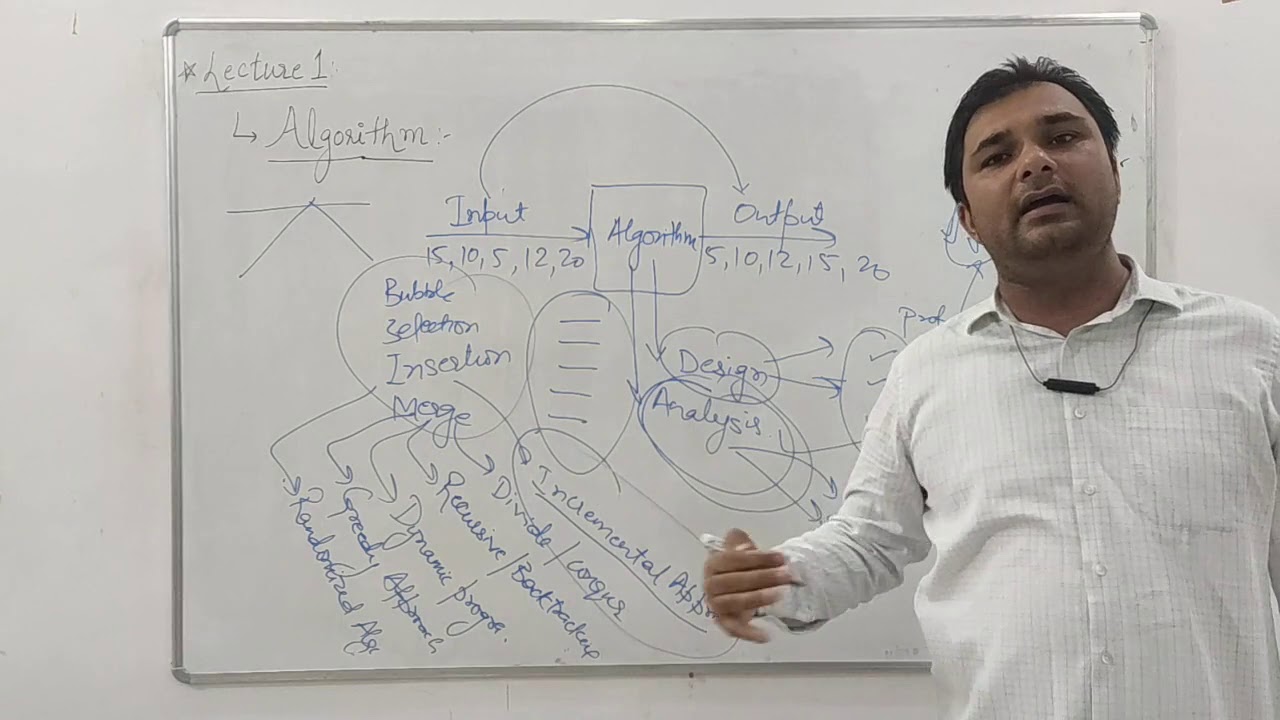 * Lecture 1:
↳ Algorithm:-
Input
Algorithm
Output
15, 10, 5, 12, 20
5, 10, 12, 15, 20
Bubble
Selection
Insertion
Merge
Design
Analysis
Prof
Incremental App
Divide / conqur
Recursive / Backtracking
Dynamic progra.
Greedy Approach
Randomized Algo